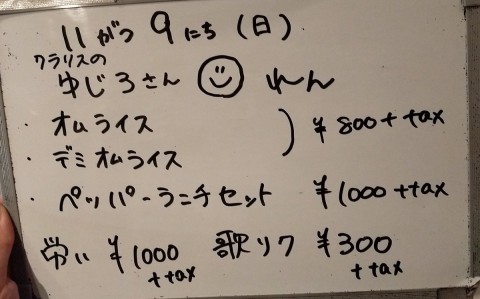 11がつ9にち(日)
クラリスの
ゆじろさん れん
・オムライス
・デミオムライス ) ¥800+tax
・ペッパーランチセット ¥1000+tax
占い ¥1000+tax 歌リク ¥300+tax